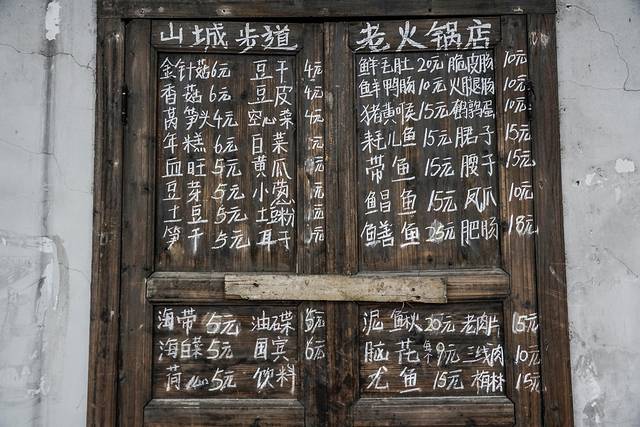 山城步道 老火锅店
金针菇6元 豆干 4元
香菇 6元 豆皮 4元
莴笋头4元 空心菜 4元
年糕 6元 白菜 元
血旺 5元 黄瓜 元
豆芽 5元 小葱 元
土豆 5元 土豆粉 元
笋干 5元 耳子 元
鲜毛肚 20元 脆皮肠 10元
鲜鸭肠 10元 火腿肠 10元
猪黄喉 15元 鹌鹑蛋 10元
耗儿鱼 15元 𦙶子 15元
带鱼 15元 腰子 15元
鲳鱼 15元 凤爪 10元
鳝鱼 25元 肥肠 18元
海带 5元 油碟 元
海白菜 5元 国宾 6元
5元 饮料
泥鳅 20元 老肉片 15元
脑花 9元 三线肉 10元
尤鱼 15元 梅林 15元